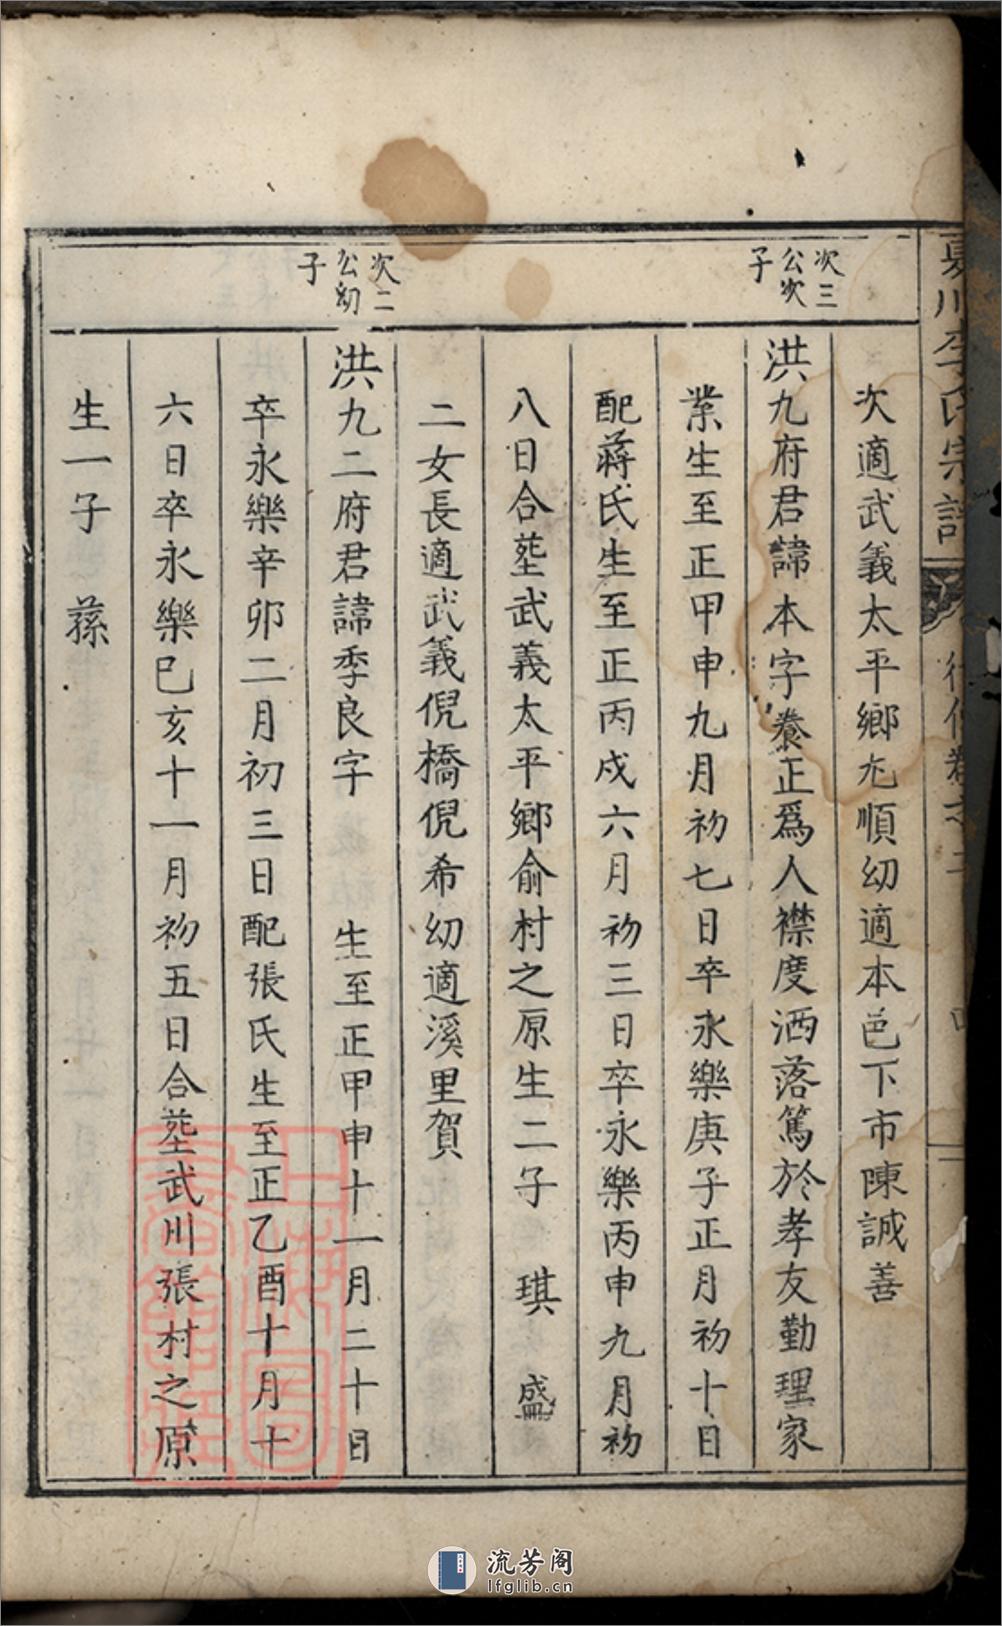 李氏宗譜
次三
公次
子
次二
公幼
子
次適武義太平鄉尢順幼適本邑下市陳誠善
洪九府君諱本字養正爲人襟度洒落篤於孝友勤理家
業生至正甲申九月初七日卒永樂庚子正月初十日
配蔣氏生至正丙戌六月初三日卒永樂丙申九月初
八日合塟武義太平鄉俞村之原生二子 琪 盛
二女長適武義倪橋倪希幼適溪里賀
洪九二府君諱季良字 生至正甲申十一月二十日
卒永樂辛卯二月初三日配張氏生至正乙酉十月十
六日卒永樂巳亥十一月初五日合塟武川張村之原
生一子 蓀
流芳阁
lfglib.cn